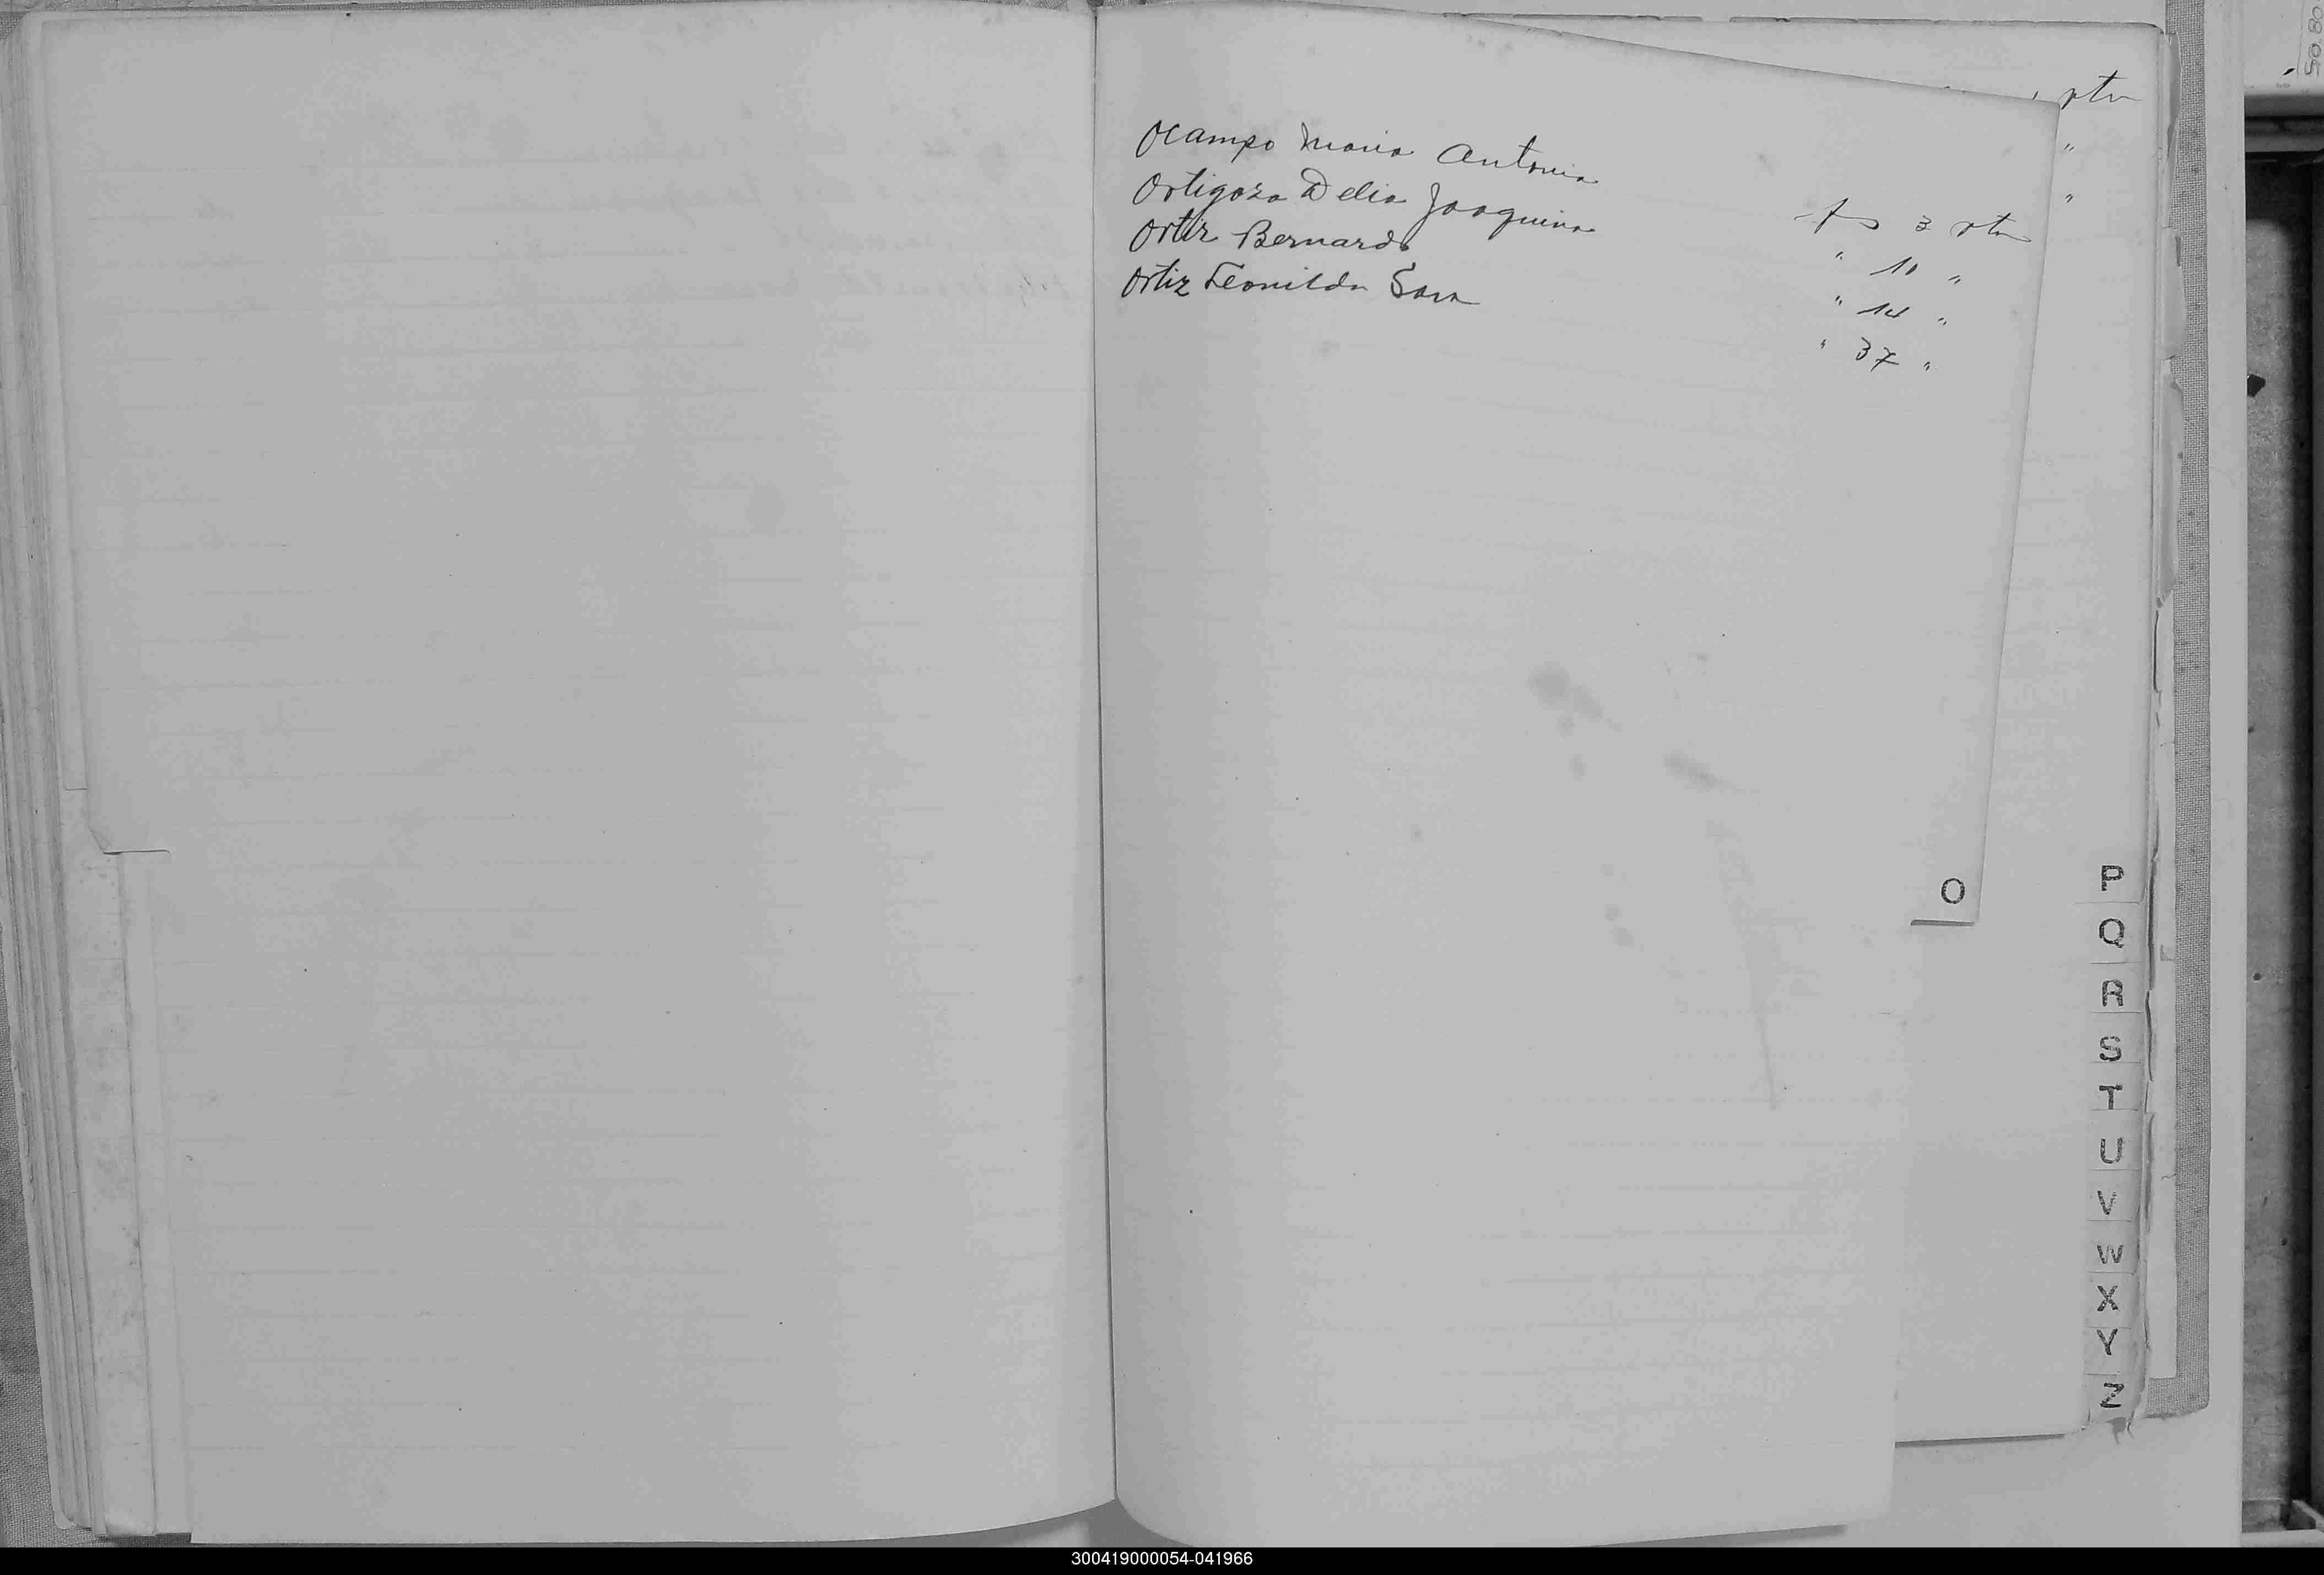 Ocampo Maria Antonia fs 3 vta
Ortigoza Delia Joaquina " 10 "
Ortiz Bernardo " 14 "
Ortiz Leonilda Sara " 37 "
vta
"
"
O
P
Q
R
S
T
U
V
W
X
Y
Z
300419000054-041966